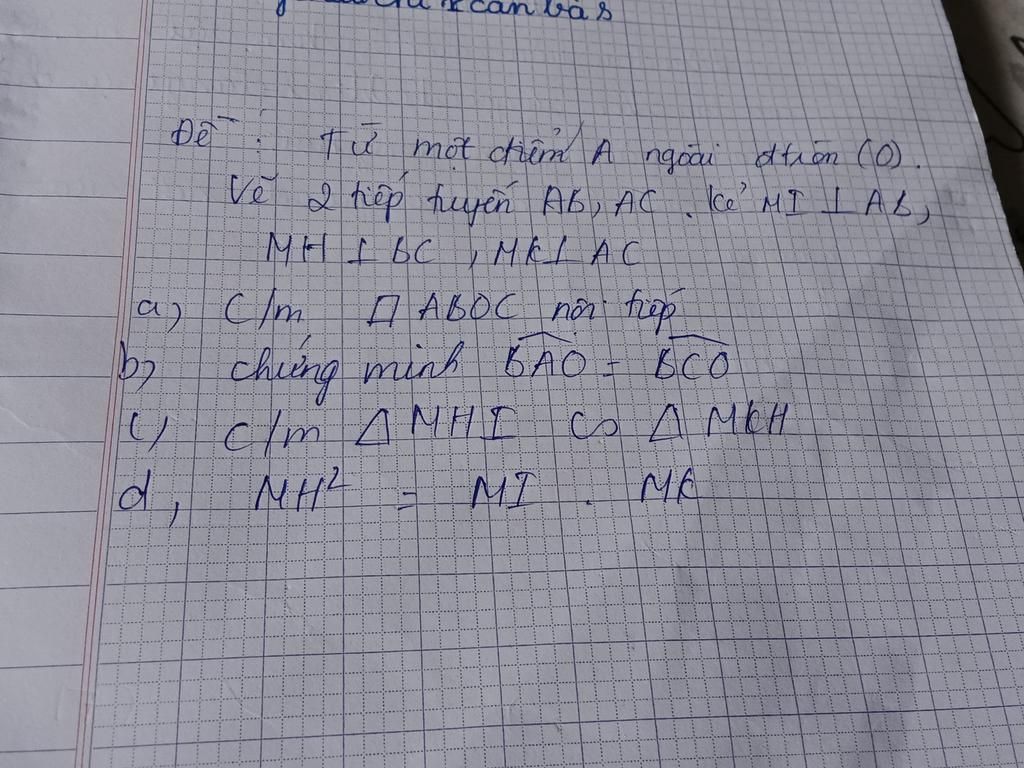 cân bàs
Đề : Từ một điểm A ngoài đtròn (O).
Vẽ 2 tiếp tuyến AB, AC . Kẻ MI ⊥ AB,
MH ⊥ BC , MK ⊥ AC
a) C/m □ ABOC nội tiếp
b) chứng minh \widehat{BAO} = \widehat{BCO}
c) C/m Δ MHI ∽ Δ MKH
d, MH² = MI . MK